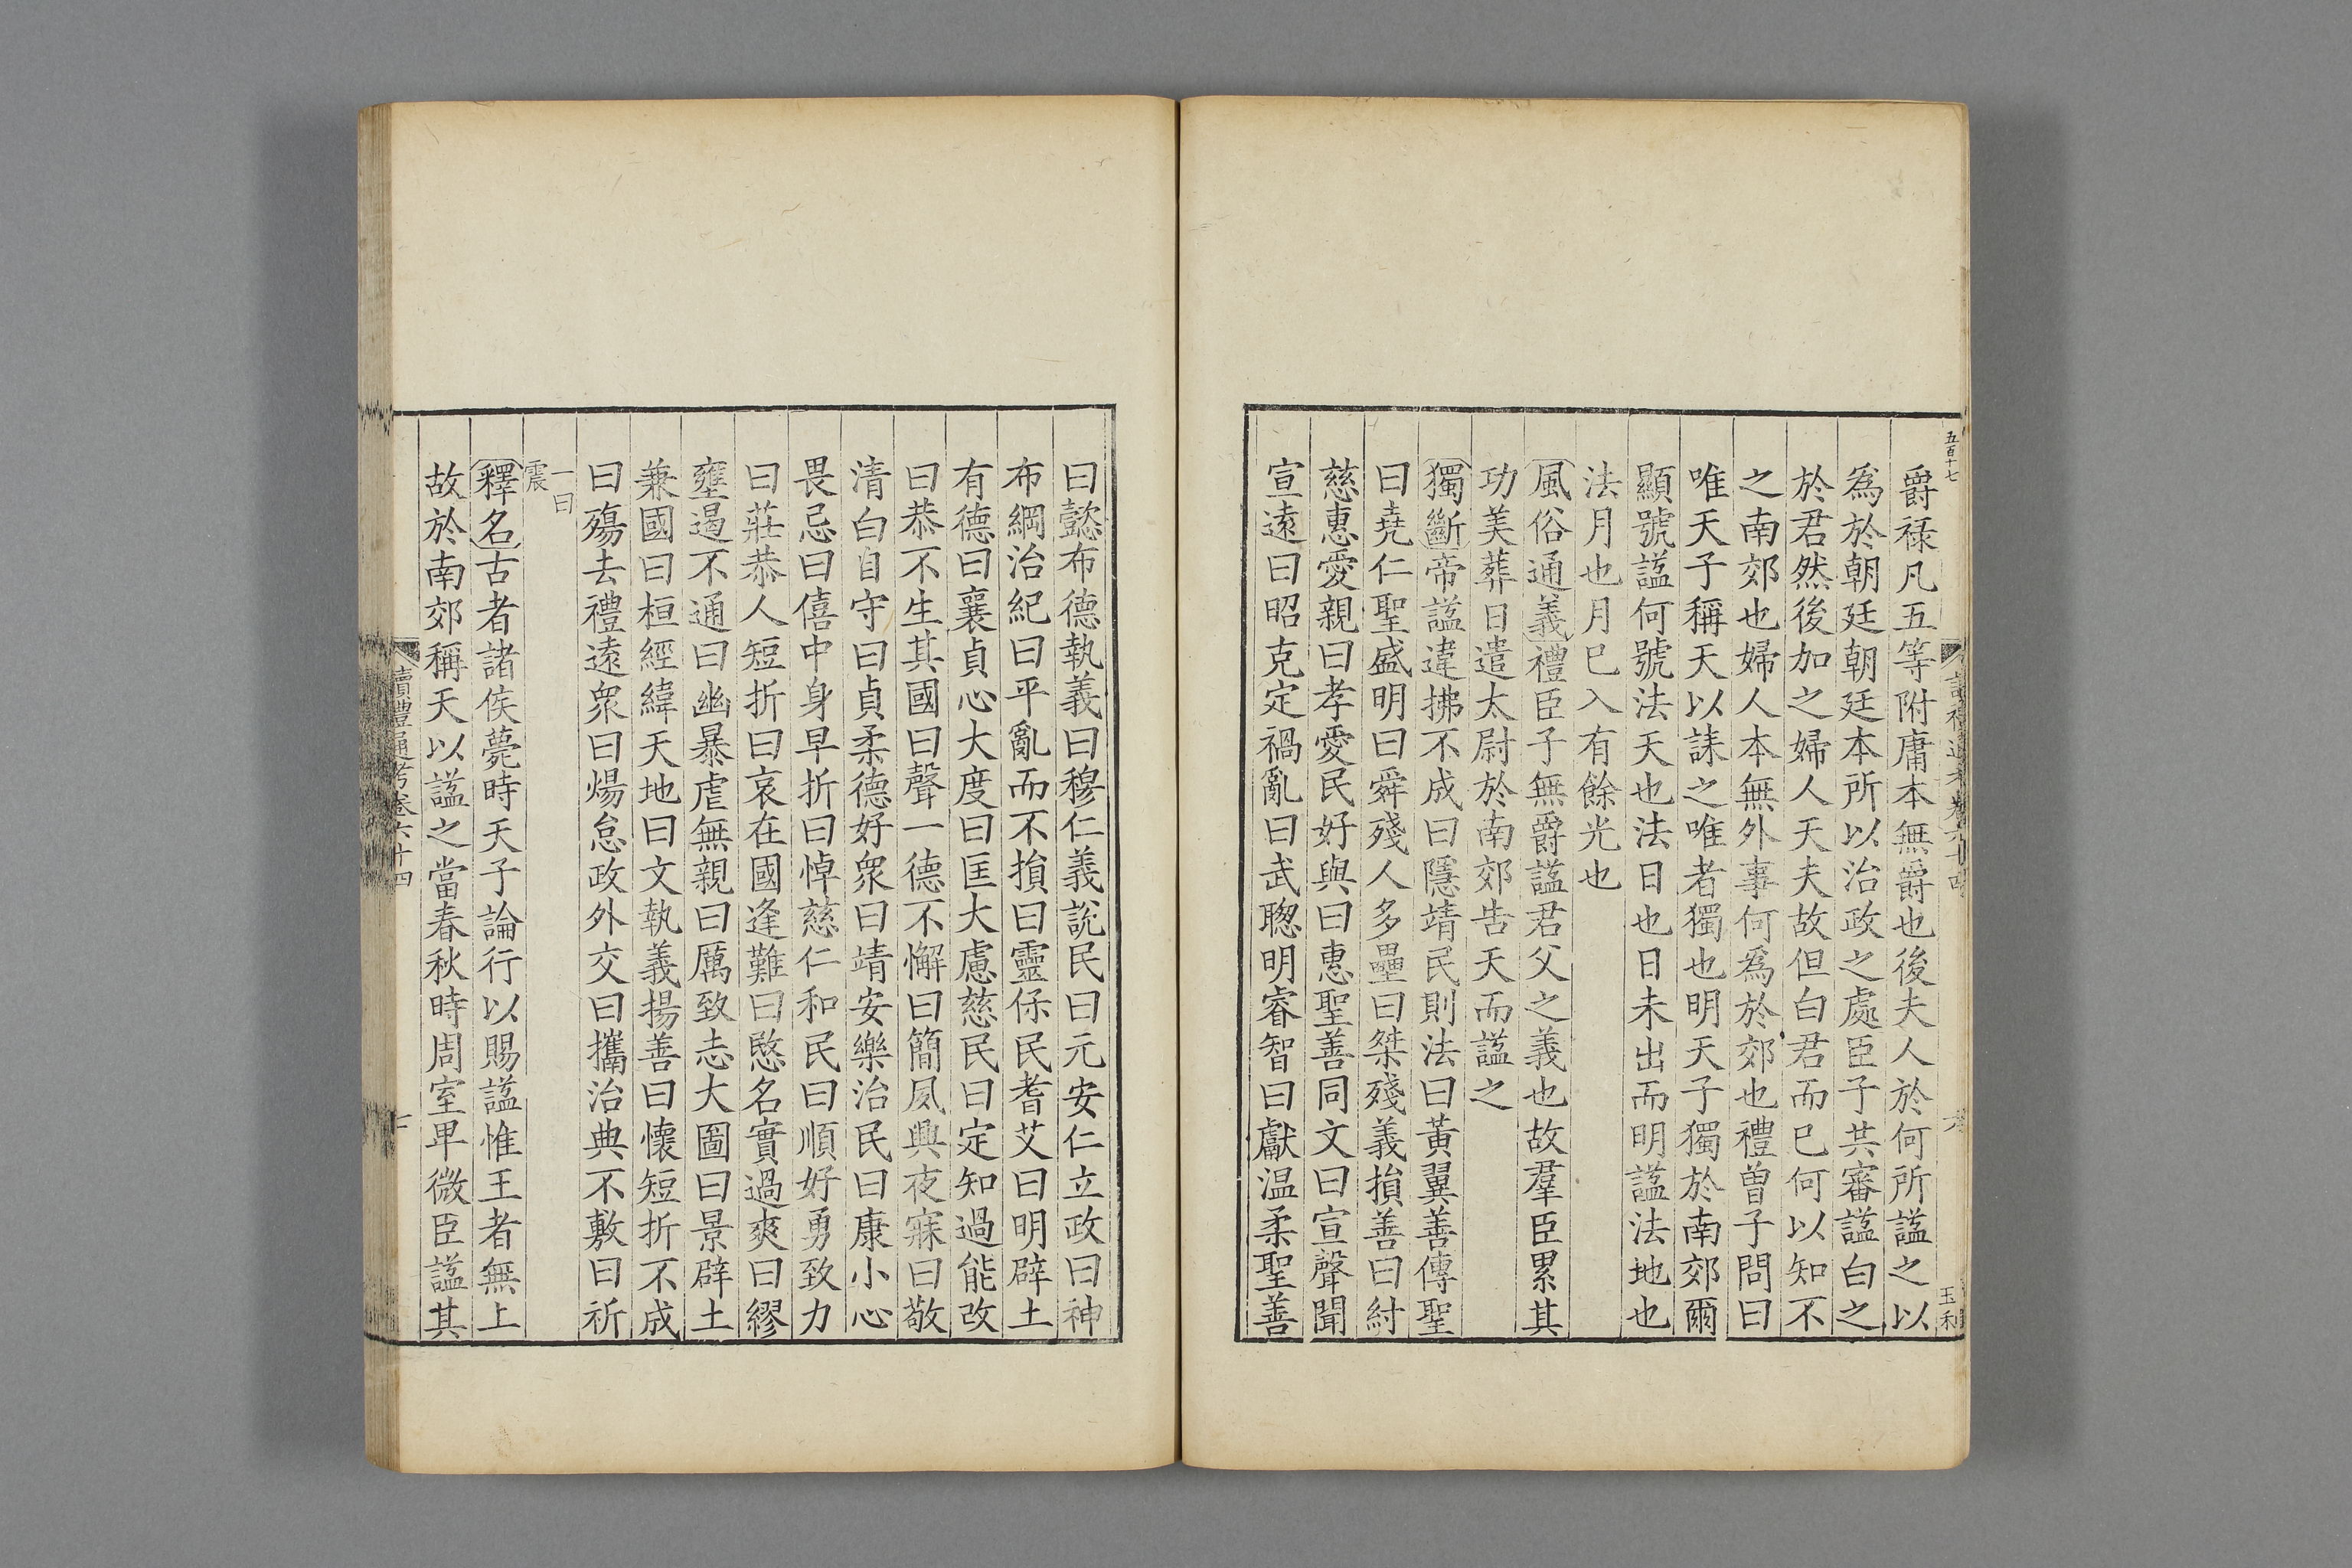 五百十七
爵祿凡五等附庸本無爵也後夫人於何所諡之以
爲於朝廷朝廷本所以治政之處臣子共審諡白之
於君然後加之婦人天夫故但白君而已何以知不
之南郊也婦人本無外事何爲於郊也禮曾子問曰
唯天子稱天以誄之唯者獨也明天子獨於南郊爾
顯號諡何號法天也法日也日未出而明諡法地也
法月也月已入有餘光也
風俗通義禮臣子無爵諡君父之義也故羣臣累其
功美葬日遣太尉於南郊告天而諡之
獨斷帝諡違拂不成曰隱靖民則法曰黃翼善傳聖
曰堯仁聖盛明曰舜殘人多壘曰桀殘義損善曰紂
慈惠愛親曰孝愛民好與曰惠聖善同文曰宣聲聞
宣遠曰昭克定禍亂曰武聰明睿智曰獻温柔聖善
曰懿布德執義曰穆仁義說民曰元安仁立政曰神
布綱治紀曰平亂而不損曰靈保民耆艾曰明辟土
有德曰襄貞心大度曰匡大慮慈民曰定知過能改
曰恭不生其國曰聲一德不懈曰簡夙興夜寐曰敬
清白自守曰貞柔德好衆曰靖安樂治民曰康小心
畏忌曰僖中身早折曰悼慈仁和民曰順好勇致力
曰莊恭人短折曰哀在國逢難曰愍名實過爽曰繆
壅遏不通曰幽暴虐無親曰厲致志大圖曰景辟土
兼國曰桓經緯天地曰文執義揚善曰懷短折不成
曰殤去禮遠衆曰煬怠政外交曰攜治典不敷曰祈
一曰
震
釋名古者諸侯薨時天子論行以賜諡惟王者無上
故於南郊稱天以諡之當春秋時周室卑微臣諡其
讀禮通考卷六十四